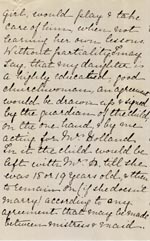 girl, would play & take
care of him when not
learning her own lessons
Without partiality I may
say that my daughter is
a highly educated, good
churchwoman, an agreement
would be drawn up & signed
by the guardians of the child
on the one hand, & by me
acting for Mrs Holland.
First the child would be
left with Mrs H. till she
was 18 or 19 years old, & then
to remain on (if she doesn't
marry) according to any
agreement that may be made
between mistress & maid.